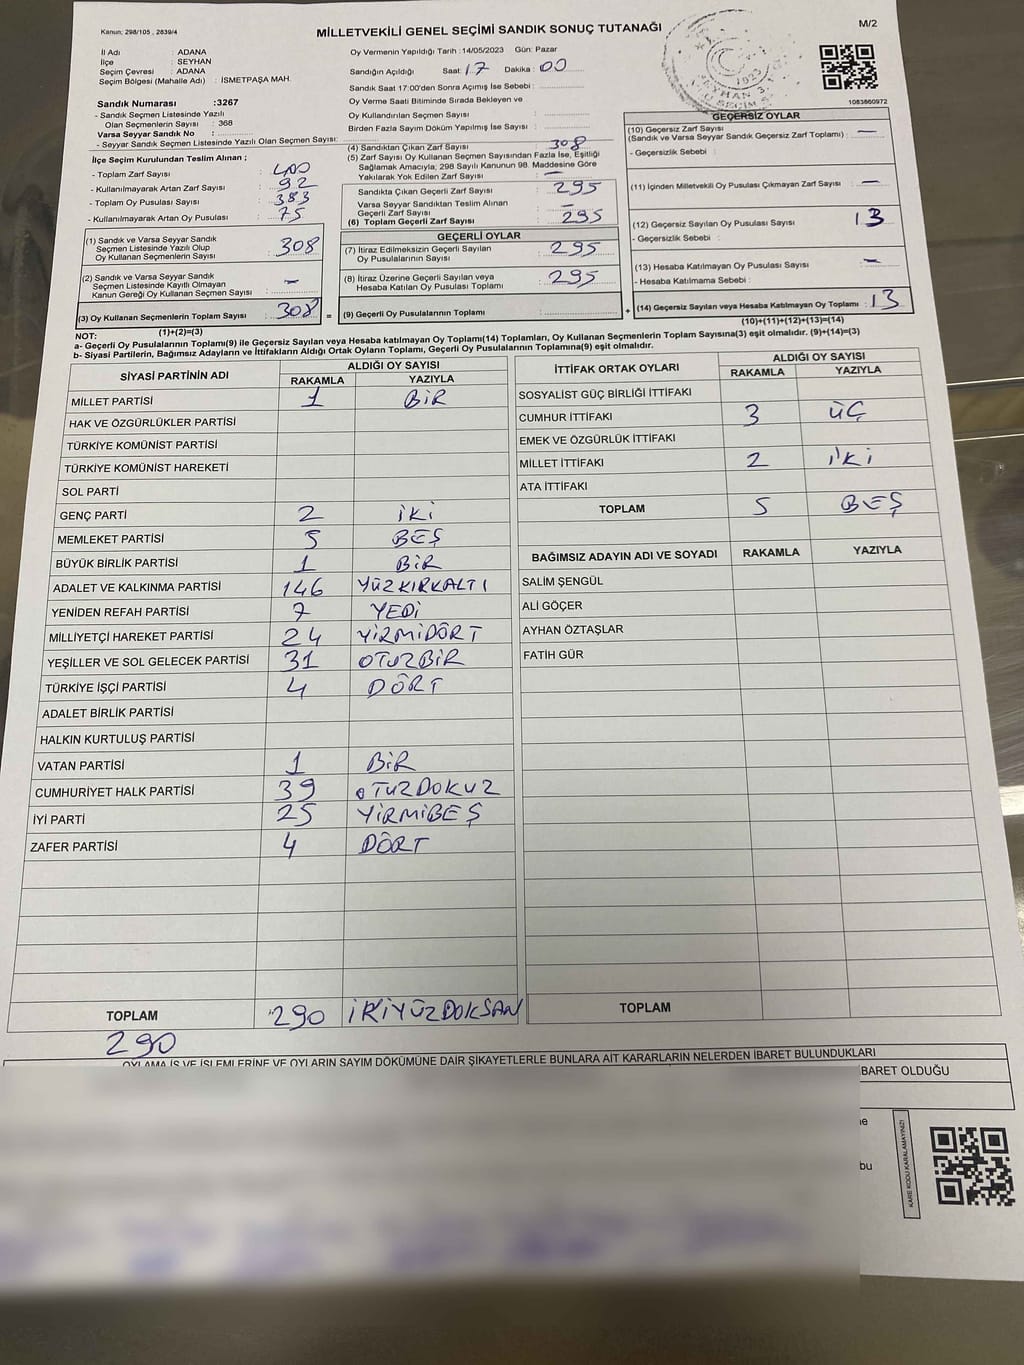 Kanun; 298/105 , 2839/4
MİLLETVEKİLİ GENEL SEÇİMİ SANDIK SONUÇ TUTANAĞI
M/2
İl Adı : ADANA
İlçe : SEYHAN
Seçim Çevresi : ADANA
Seçim Bölgesi (Mahalle Adı) : İSMETPAŞA MAH.
Oy Vermenin Yapıldığı Tarih :14/05/2023 Gün: Pazar
Sandığın Açıldığı Saat: 17 Dakika : 00
Sandık Saat 17:00'den Sonra Açımış İse Sebebi :
Oy Verme Saati Bitiminde Sırada Bekleyen ve
Oy Kullandırılan Seçmen Sayısı :
Birden Fazla Sayım Döküm Yapılmış İse Sayısı :
1083860972
Sandık Numarası :3267
- Sandık Seçmen Listesinde Yazılı
Olan Seçmenlerin Sayısı : 368
Varsa Seyyar Sandık No :
- Seyyar Sandık Seçmen Listesinde Yazılı Olan Seçmen Sayısı:
İlçe Seçim Kurulundan Teslim Alınan ;
- Toplam Zarf Sayısı : 400
- Kullanılmayarak Artan Zarf Sayısı : 92
- Toplam Oy Pusulası Sayısı : 383
- Kullanılmayarak Artan Oy Pusulası : 75
(1) Sandık ve Varsa Seyyar Sandık
Seçmen Listesinde Yazılı Olup
Oy Kullanan Seçmenlerin Sayısı : 308
(2) Sandık ve Varsa Seyyar Sandık
Seçmen Listesinde Kayıtlı Olmayan
Kanun Gereği Oy Kullanan Seçmen Sayısı : —
(3) Oy Kullanan Seçmenlerin Toplam Sayısı : 308
(1)+(2)=(3)
(4) Sandıktan Çıkan Zarf Sayısı : 308
(5) Zarf Sayısı Oy Kullanan Seçmen Sayısından Fazla İse, Eşitliği
Sağlamak Amacıyla; 298 Sayılı Kanunun 98. Maddesine Göre
Yakılarak Yok Edilen Zarf Sayısı : —
Sandıkta Çıkan Geçerli Zarf Sayısı : 295
Varsa Seyyar Sandıktan Teslim Alınan
Geçerli Zarf Sayısı : —
(6) Toplam Geçerli Zarf Sayısı : 295
GEÇERLİ OYLAR
(7) İtiraz Edilmeksizin Geçerli Sayılan
Oy Pusulalarının Sayısı : 295
(8) İtiraz Üzerine Geçerli Sayılan veya
Hesaba Katılan Oy Pusulası Toplamı : 295
= (9) Geçerli Oy Pusulalarının Toplamı :
GEÇERSİZ OYLAR
(10) Geçersiz Zarf Sayısı
(Sandık ve Varsa Seyyar Sandık Geçersiz Zarf Toplamı) : —
- Geçersizlik Sebebi :
(11) İçinden Milletvekili Oy Pusulası Çıkmayan Zarf Sayısı : —
(12) Geçersiz Sayılan Oy Pusulası Sayısı : 13
- Geçersizlik Sebebi :
(13) Hesaba Katılmayan Oy Pusulası Sayısı : —
- Hesaba Katılmama Sebebi :
+ (14) Geçersiz Sayılan veya Hesaba Katılmayan Oy Toplamı : 13
(10)+(11)+(12)+(13)=(14)
NOT:
a- Geçerli Oy Pusulalarının Toplamı(9) ile Geçersiz Sayılan veya Hesaba katılmayan Oy Toplamı(14) Toplamları, Oy Kullanan Seçmenlerin Toplam Sayısına(3) eşit olmalıdır. (9)+(14)=(3)
b- Siyasi Partilerin, Bağımsız Adayların ve İttifakların Aldığı Ortak Oyların Toplamı, Geçerli Oy Pusulalarının Toplamına(9) eşit olmalıdır.
SİYASİ PARTİNİN ADI ALDIĞI OY SAYISI
RAKAMLA YAZIYLA
MİLLET PARTİSİ 1 BİR
HAK VE ÖZGÜRLÜKLER PARTİSİ
TÜRKİYE KOMÜNİST PARTİSİ
TÜRKİYE KOMÜNİST HAREKETİ
SOL PARTİ
GENÇ PARTİ 2 İKİ
MEMLEKET PARTİSİ 5 BEŞ
BÜYÜK BİRLİK PARTİSİ 1 BİR
ADALET VE KALKINMA PARTİSİ 146 YÜZKIRKALTI
YENİDEN REFAH PARTİSİ 7 YEDİ
MİLLİYETÇİ HAREKET PARTİSİ 24 YİRMİDÖRT
YEŞİLLER VE SOL GELECEK PARTİSİ 31 OTUZBİR
TÜRKİYE İŞÇİ PARTİSİ 4 DÖRT
ADALET BİRLİK PARTİSİ
HALKIN KURTULUŞ PARTİSİ
VATAN PARTİSİ 1 BİR
CUMHURİYET HALK PARTİSİ 39 OTUZDOKUZ
İYİ PARTİ 25 YİRMİBEŞ
ZAFER PARTİSİ 4 DÖRT
TOPLAM 290 İKİYÜZDOKSAN
290
İTTİFAK ORTAK OYLARI ALDIĞI OY SAYISI
RAKAMLA YAZIYLA
SOSYALİST GÜÇ BİRLİĞİ İTTİFAKI
CUMHUR İTTİFAKI 3 ÜÇ
EMEK VE ÖZGÜRLÜK İTTİFAKI
MİLLET İTTİFAKI 2 İKİ
ATA İTTİFAKI
TOPLAM 5 BEŞ
BAĞIMSIZ ADAYIN ADI VE SOYADI RAKAMLA YAZIYLA
SALİM ŞENGÜL
ALİ GÖÇER
AYHAN ÖZTAŞLAR
FATİH GÜR
TOPLAM
OYLAMA İŞ VE İŞLEMLERİNE VE OYLARIN SAYIM DÖKÜMÜNE DAİR ŞİKAYETLERLE BUNLARA AİT KARARLARIN NELERDEN İBARET BULUNDUKLARI
BARET OLDUĞU
bu
KARE KODU KARALAMAYINIZ!